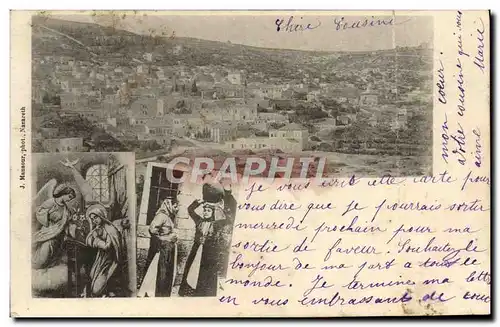 Chère Cousine
J. Mansour, phot., Nazareth
CPARAMA
Je vous écris cette carte pour
vous dire que je pourrais sortir
mercredi prochain pour ma
sortie de faveur. Souhaitez le
bonjour de ma part à tout le
monde. Je termine ma lettre
en vous embrassant de tout
mon coeur.
votre cousine qui vous
aime
Marie